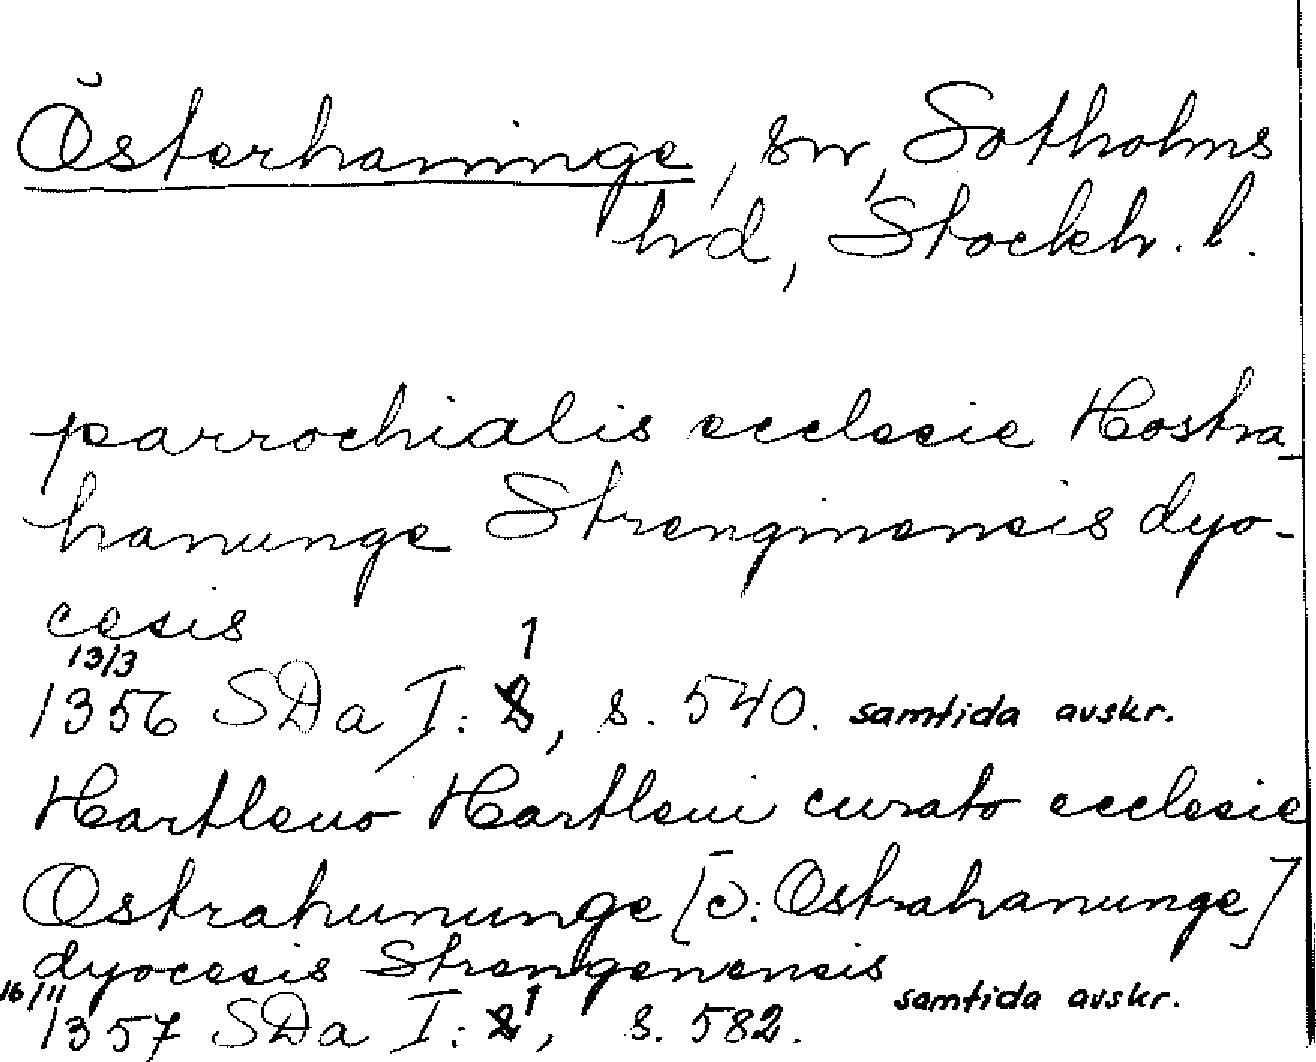 Österhaninge, sn, Sotholms
hd, Stockh. l.
parrochialis ecclesie Hostra
hanunge Strenginensis dyo-
cesis
13/3 1
1356 SDa I: 2, s. 540. samtida avskr.
Hartleuo Hartleui curato ecclesie
Ostrahununge [ɔ: Ostrahanunge]
dyocesis Strengenensis
16/11 1 samtida avskr.
1357 SDa I: 2, s. 582.